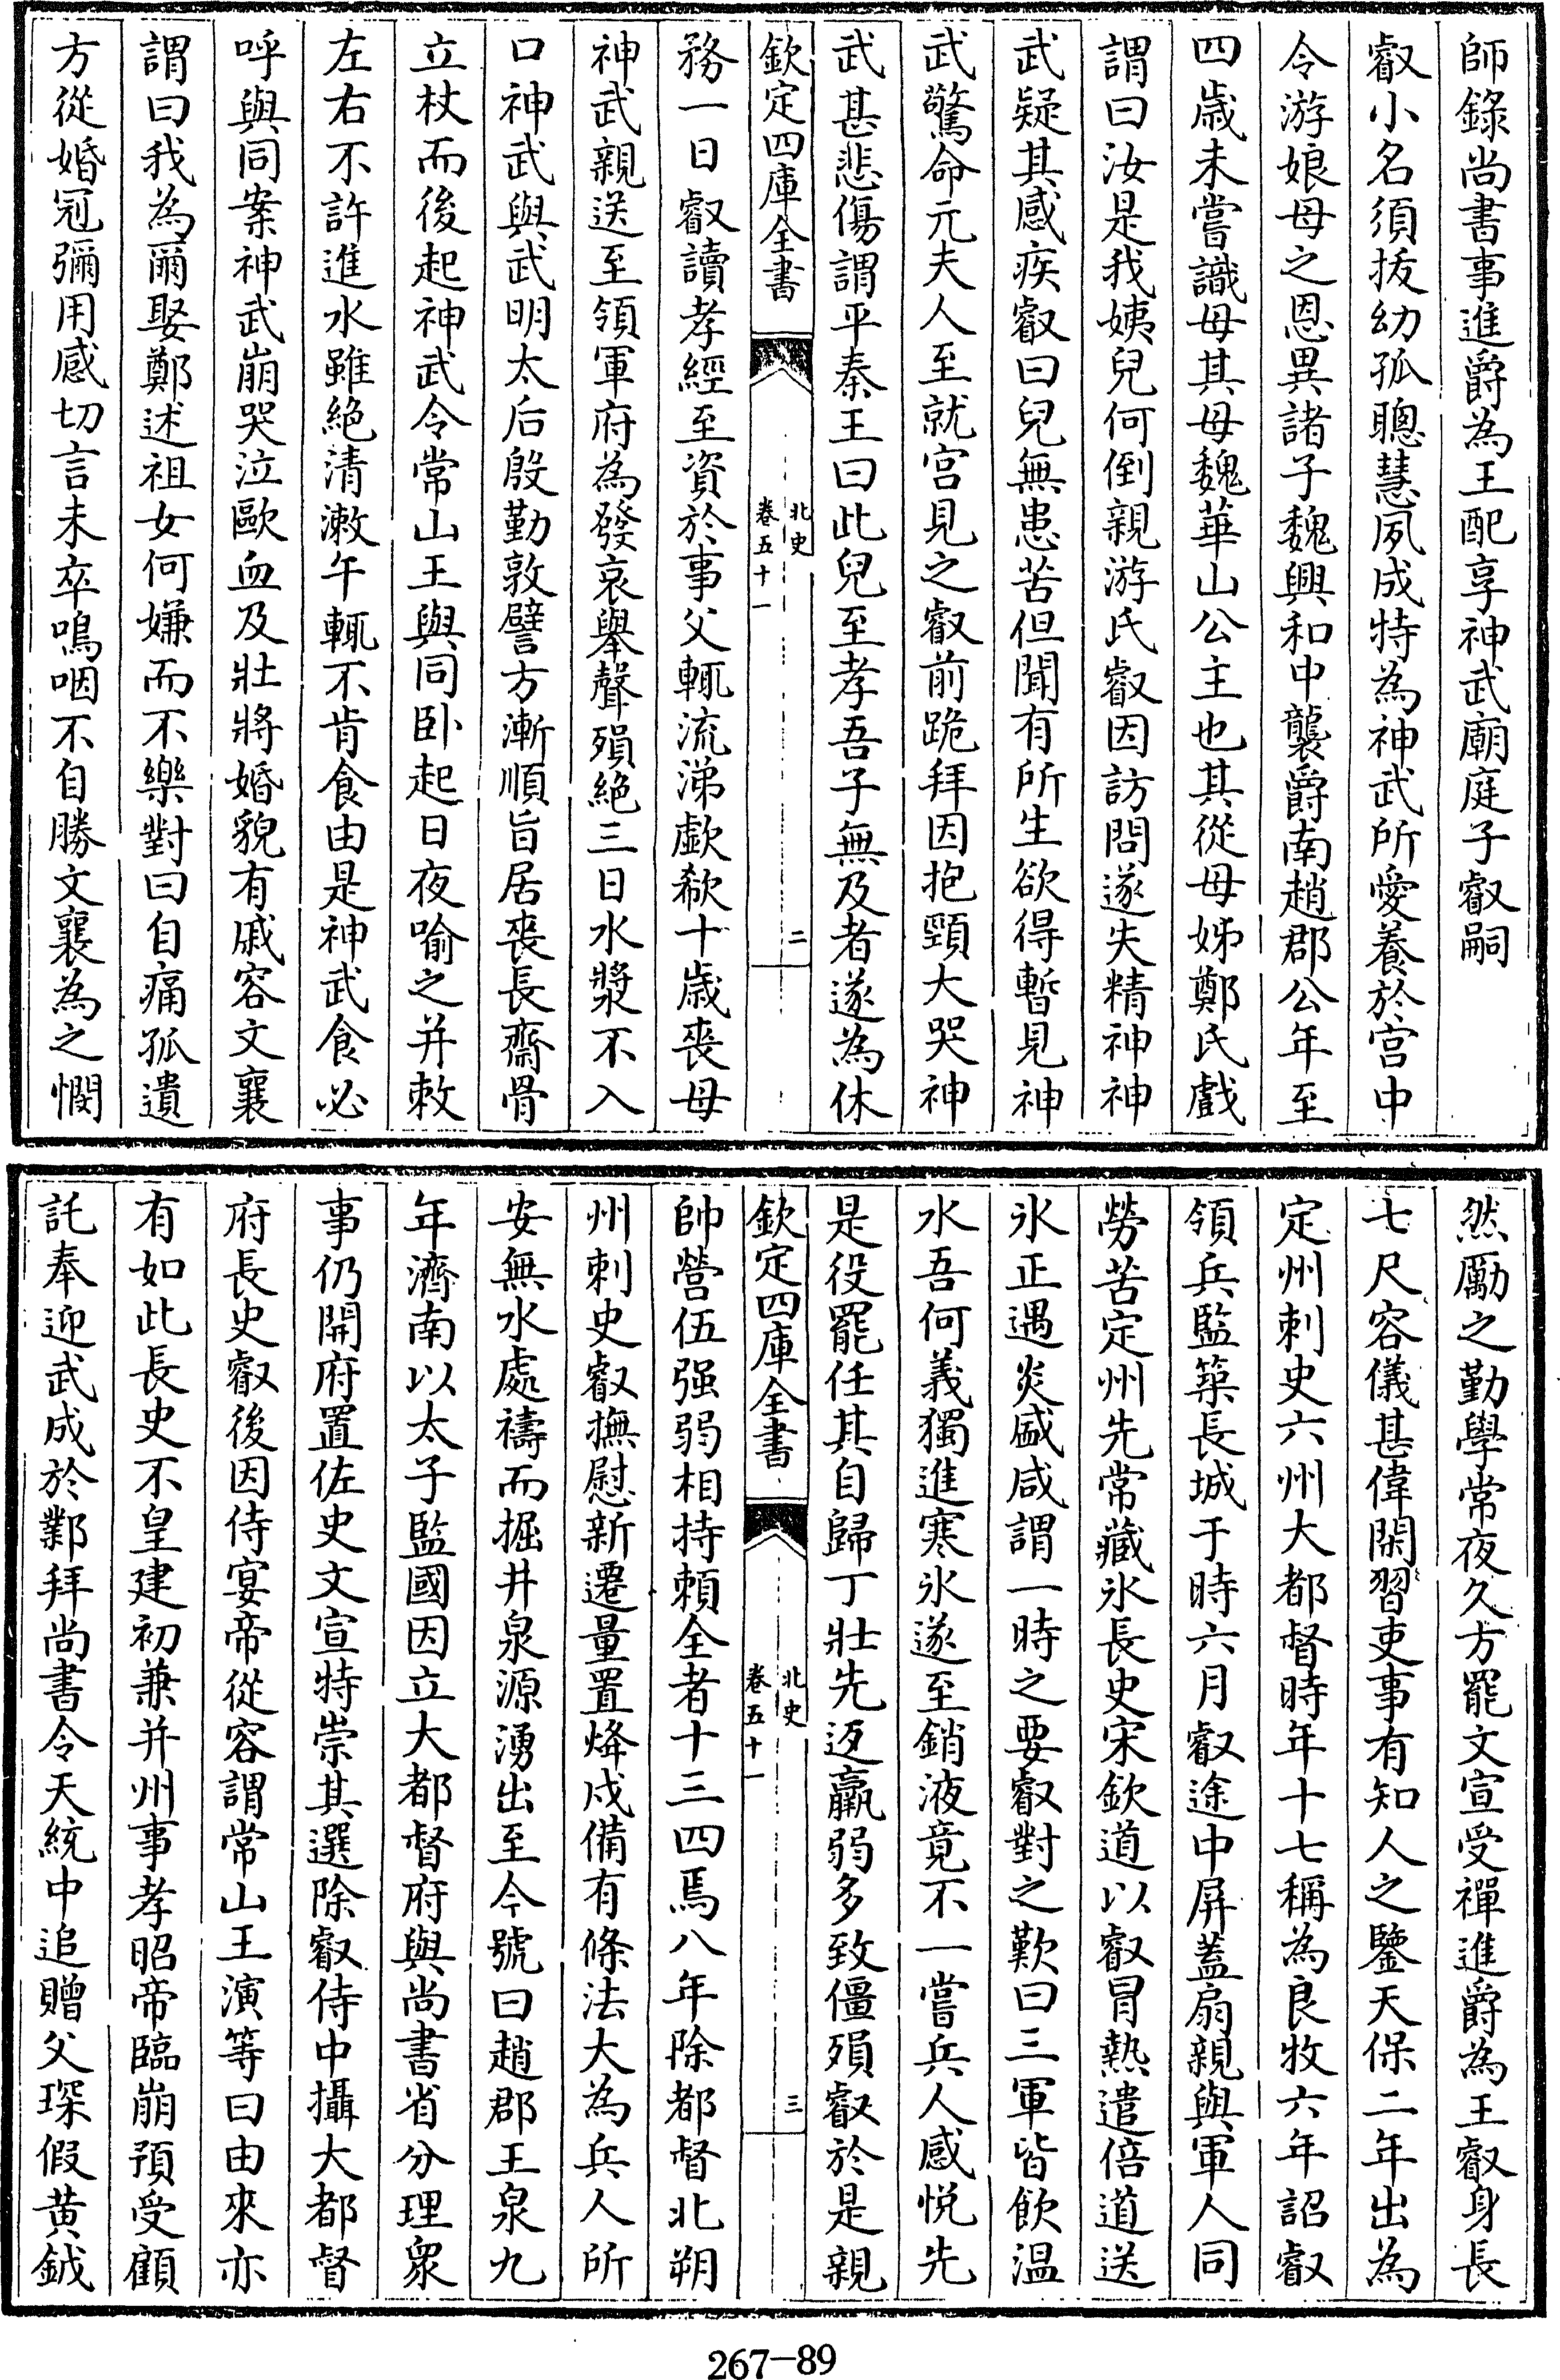 師錄尚書事進爵為王配享神武廟庭子叡嗣
叡小名須拔幼孤聰慧夙成特為神武所愛養於宮中
令游娘母之恩異諸子魏興和中襲爵南趙郡公年至
四歳未嘗識母其母魏華山公主也其從母姊鄭氏戲
謂曰汝是我姨兒何倒親游氏叡因訪問遂失精神神
武疑其感疾叡曰兒無患苦但聞有所生欲得暫見神
武驚命元夫人至就宮見之叡前跪拜因抱頸大哭神
武甚悲傷謂平秦王曰此兒至孝吾子無及者遂為休
欽定四庫全書
北史
卷五十一
二
務一日叡讀孝經至資於事父輒流涕歔欷十歳喪母
神武親送至領軍府為發哀舉聲殞絶三日水漿不入
口神武與武明太后殷勤敦譬方漸順旨居喪長齋骨
立杖而後起神武令常山王與同卧起日夜喻之并敕
左右不許進水雖絶清漱午輒不肯食由是神武食必
呼與同案神武崩哭泣歐血及壯將婚貌有戚容文襄
謂曰我為爾娶鄭述祖女何嫌而不樂對曰自痛孤遺
方從婚冠彌用感切言未卒嗚咽不自勝文襄為之憫
然勵之勤學常夜久方罷文宣受禪進爵為王叡身長
七尺容儀甚偉閑習吏事有知人之鑒天保二年出為
定州刺史六州大都督時年十七稱為良牧六年詔叡
領兵監築長城于時六月叡途中屏蓋扇親與軍人同
勞苦定州先常藏氷長史宋欽道以叡冒熱遣倍道送
氷正遇炎盛咸謂一時之要叡對之歎曰三軍皆飲温
水吾何義獨進寒氷遂至銷液竟不一嘗兵人感悦先
是役罷任其自歸丁壯先返羸弱多致僵殞叡於是親
欽定四庫全書
北史
卷五十一
三
帥營伍强弱相持賴全者十三四焉八年除都督北朔
州刺史叡撫慰新遷量置烽戍備有條法大為兵人所
安無水處禱而掘井泉源湧出至今號曰趙郡王泉九
年濟南以太子監國因立大都督府與尚書省分理衆
事仍開府置佐史文宣特崇其選除叡侍中攝大都督
府長史叡後因侍宴帝從容謂常山王演等曰由來亦
有如此長史不皇建初兼并州事孝昭帝臨崩預受顧
託奉迎武成於鄴拜尚書令天統中追贈父琛假黄鉞
267-89